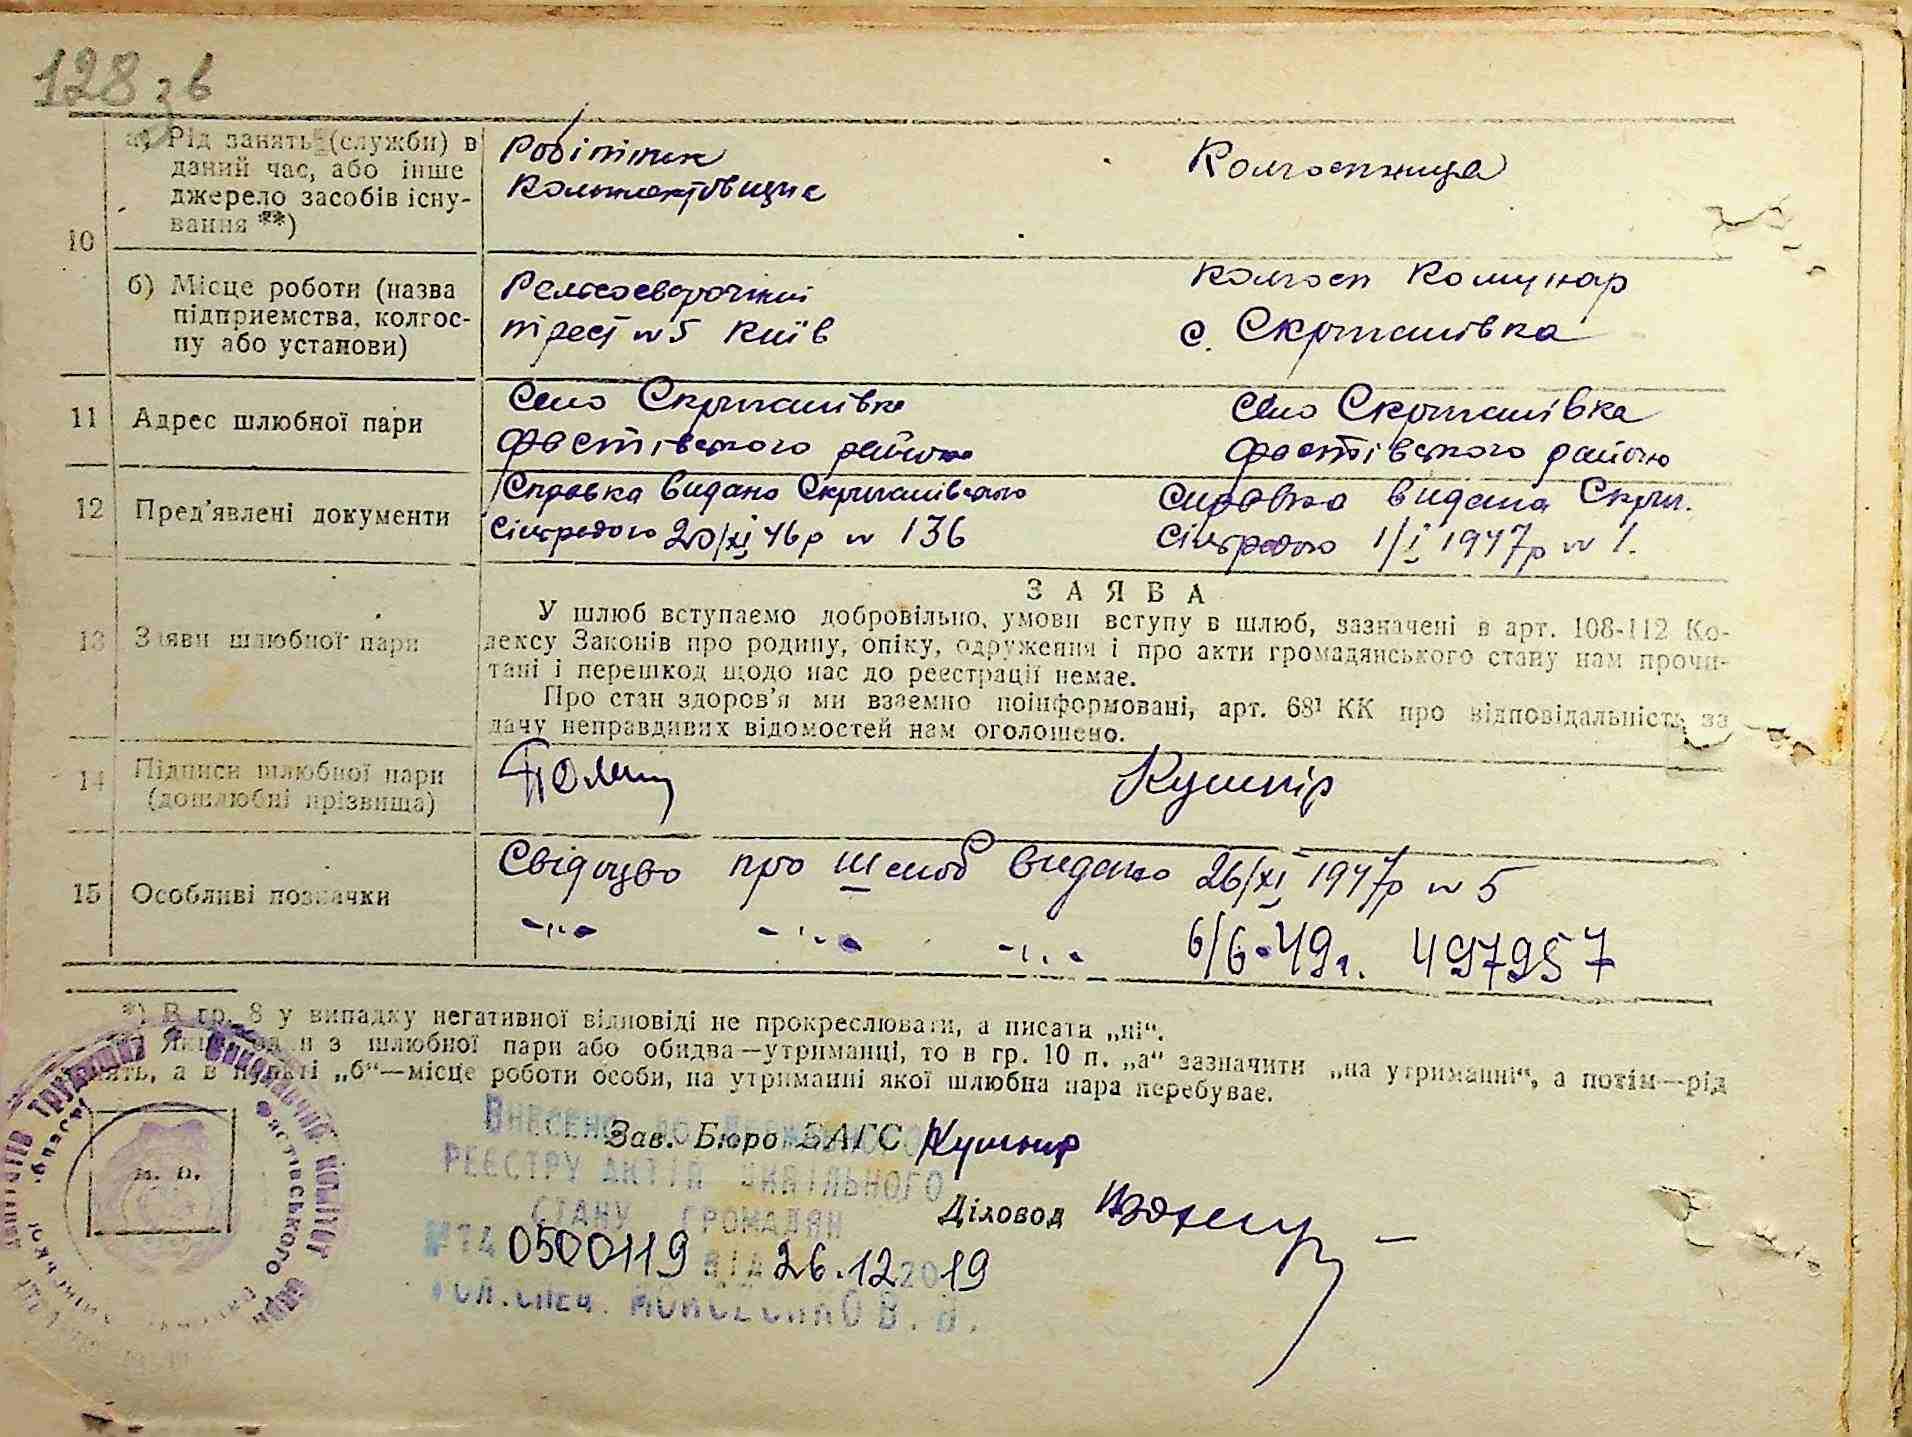 128 зв
10
а) Рід занять (служби) в
даний час, або інше
джерело засобів існу-
вання **)
Робітник
Комплектовщик
Колгоспниця
б) Місце роботи (назва
підприємства, колгос-
пу або установи)
Рельсосварочний
трест № 5 Київ
Колгосп Комунар
с. Скригалівка
11
Адрес шлюбної пари
Село Скригалівка
Фастівського району
Село Скригалівка
Фастівського району
12
Пред'явлені документи
Справка видана Скригалівською
сільрадою 20/XI 46р № 136
Справка видана Скриг.
сільрадою 1/I 1947р № 1.
13
Заяви шлюбної пари
ЗАЯВА
У шлюб вступаємо добровільно, умови вступу в шлюб, зазначені в арт. 108-112 Ко-
дексу Законів про родину, опіку, одруження і про акти громадянського стану нам прочи-
тані і перешкод щодо нас до реєстрації немає.
Про стан здоров'я ми взаємно поінформовані, арт. 68¹ КК про відповідальність за
дачу неправдивих відомостей нам оголошено.
14
Підписи шлюбної пари
(дошлюбні прізвища)
Кушнір
15
Особливі позначки
Свідоцво про шлюб видано 26/XI 1947р № 5
-"- -"- -"- 6/6-49г. 497957
*) В гр. 8 у випадку негативної відповіді не прокреслювати, а писати „ні“.
з шлюбної пари або обидва—утриманці, то в гр. 10 п. „а“ зазначити „на утриманні“, а потім—рід
занять, а в пункті „б“—місце роботи особи, на утриманні якої шлюбна пара перебуває.
Зав. Бюро ЗАГС Кушнір
Діловод
м. п.
Виконавчий комітет
Фастівського
Внесено до Державного
реєстру актів цивільного
стану громадян
№ 74 0500119 від 26.12.2019
гол.спец. Мойсеєнко В. В.